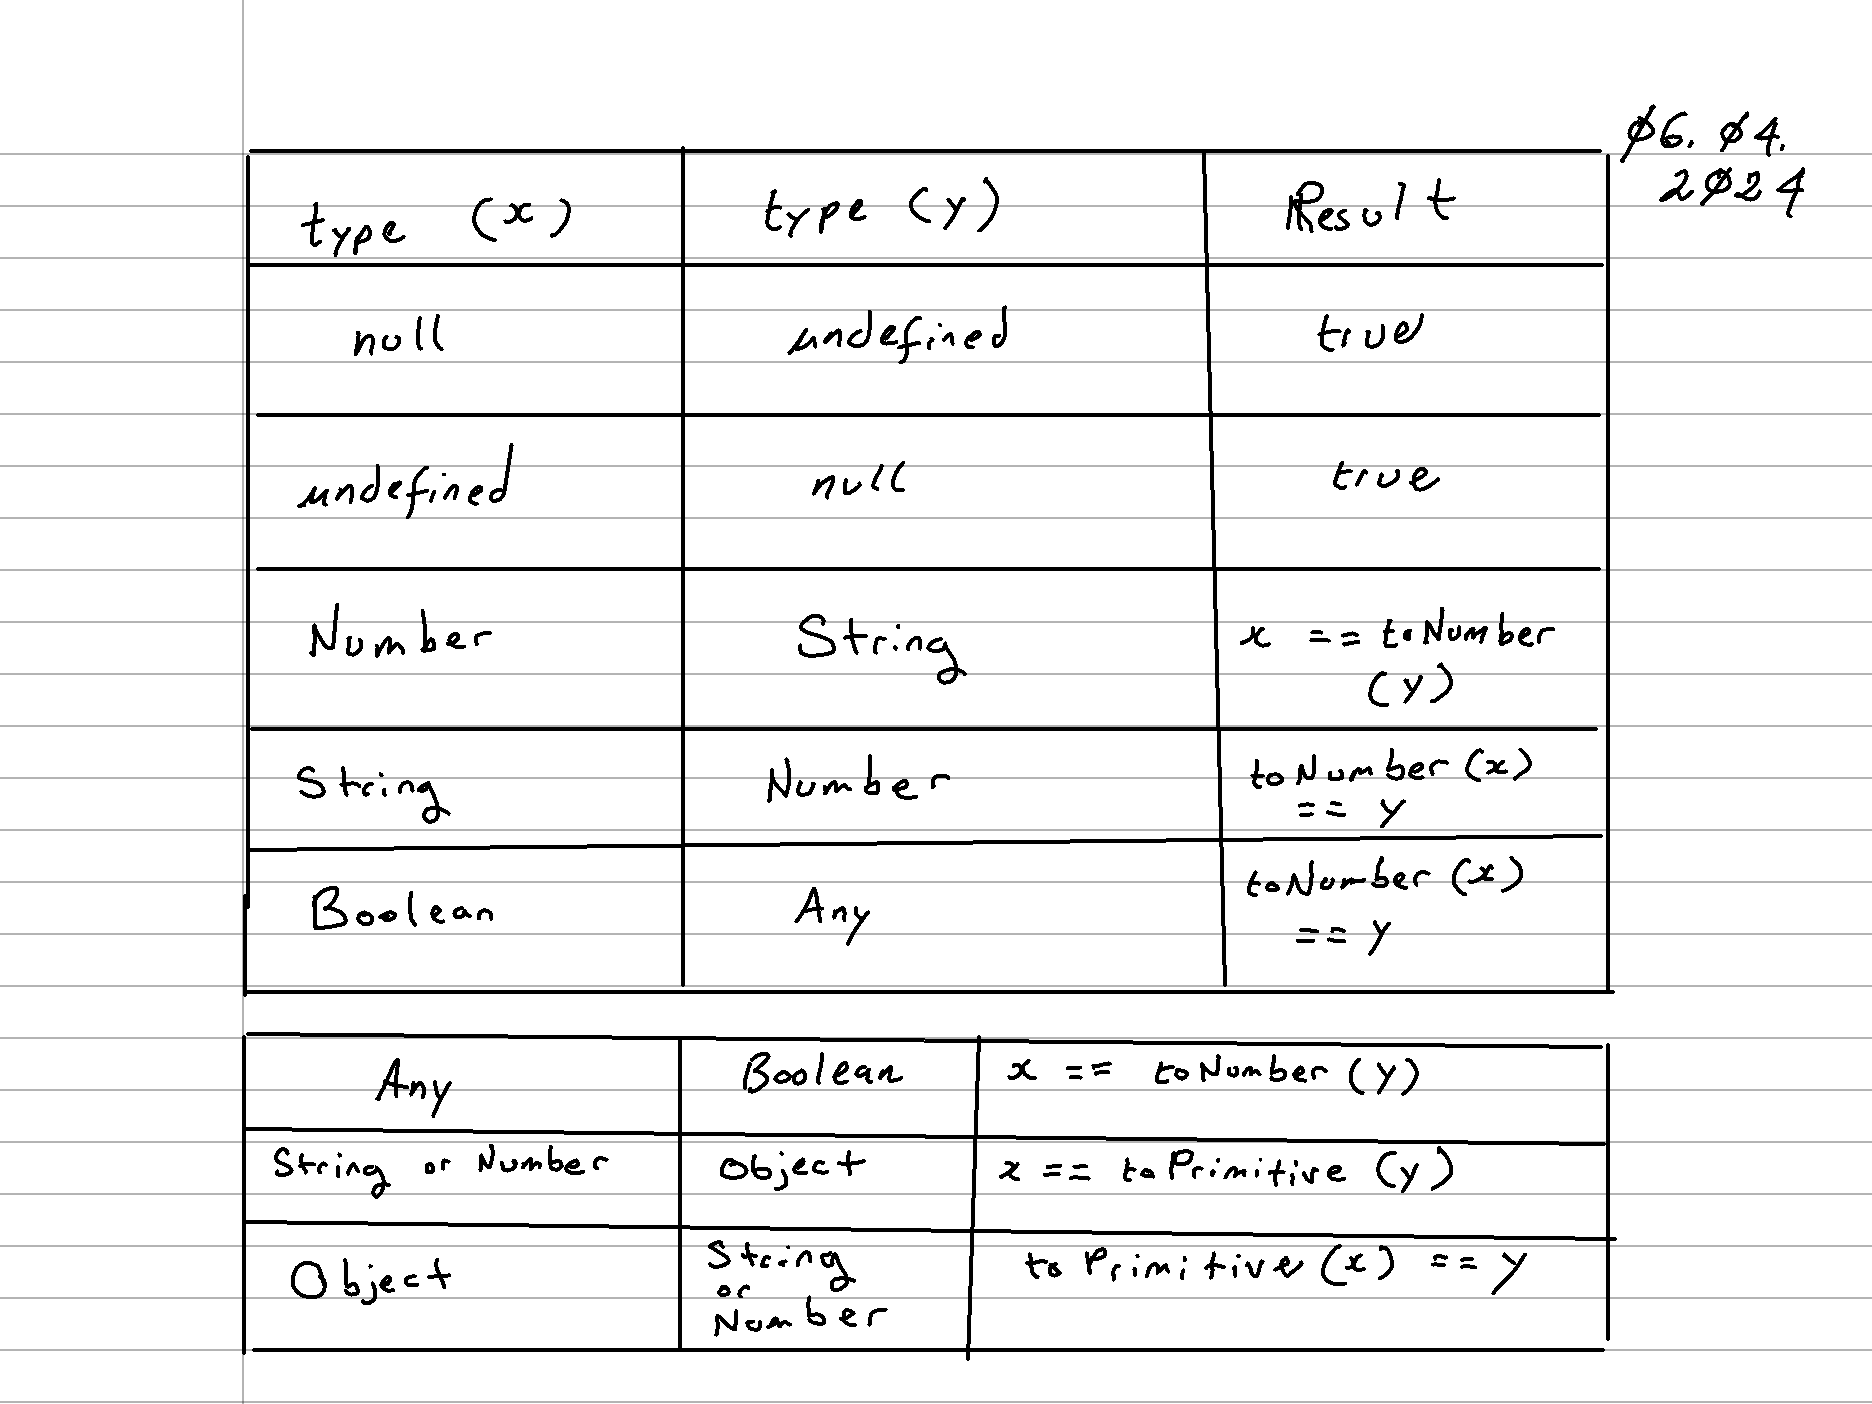 ø6. ø4.
2ø24
type (x) type (y) Result
null undefined true
undefined null true
Number String x == toNumber
(y)
String Number toNumber (x)
== y
Boolean Any toNumber (x)
== y
Any Boolean x == toNumber (y)
String or Number Object x == toPrimitive (y)
Object String
or
Number toPrimitive (x) == y